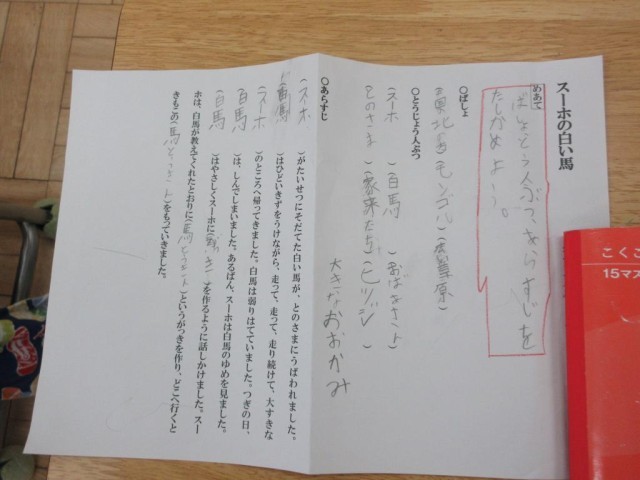 スーホの白い馬
めあて
ばしょとう人ぶつ、あらすじを
たしかめよう。
○ばしょ
○とうじょう人ぶつ
(スーホ)(白馬)(おばあさん)
(とのさま)(家来たち)(ヒツジ)
大きなおおかみ
○あらすじ
(スーホ)がたいせつにそだてた白い馬が、とのさまにうばわれました。
(白馬)はひどいきずをうけながら、走って、走って、走り続けて、大すきな
(スーホ)のところへ帰ってきました。白馬は弱りはてていました。つぎの日、
(白馬)は、しんでしまいました。あるばん、スーホは白馬のゆめを見ました。
(白馬)はやさしくスーホに()を作るように話しかけました。スー
ホは、白馬が教えてくれたとおりに(馬とうきん)というがっきを作り、どこへ行くと
きもこの(馬とうきん)をもっていきました。
こくご
15マス